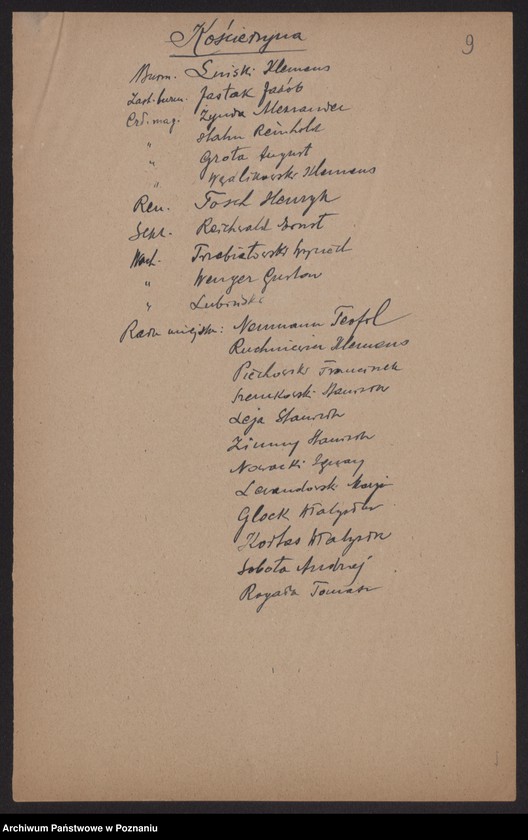 Kościerzyna
9
Burm. Liński Klemens
Zast. burm. Jastak Jakób
Czł. mag. Żynda Alexander
" Hahn Reinhold
" Grota August
" Klemens
Ren. Tosch Henryk
Sekr. Reichwald Ernst
Wach. Trzebiatowski
" Wenger Gustaw
" Lubiński
Rada miejska: Neumann Teofil
Ruchniewicz Klemens
Piechowski Franciszek
Szemkowski Stanisław
Leja Stanisław
Zimny Stanisław
Nowacki Ignacy
Lewandowski
Glock Władysław
Kortas Władysław
Sobota Andrzej
Rogala Tomasz
Archiwum Państwowe w Poznaniu